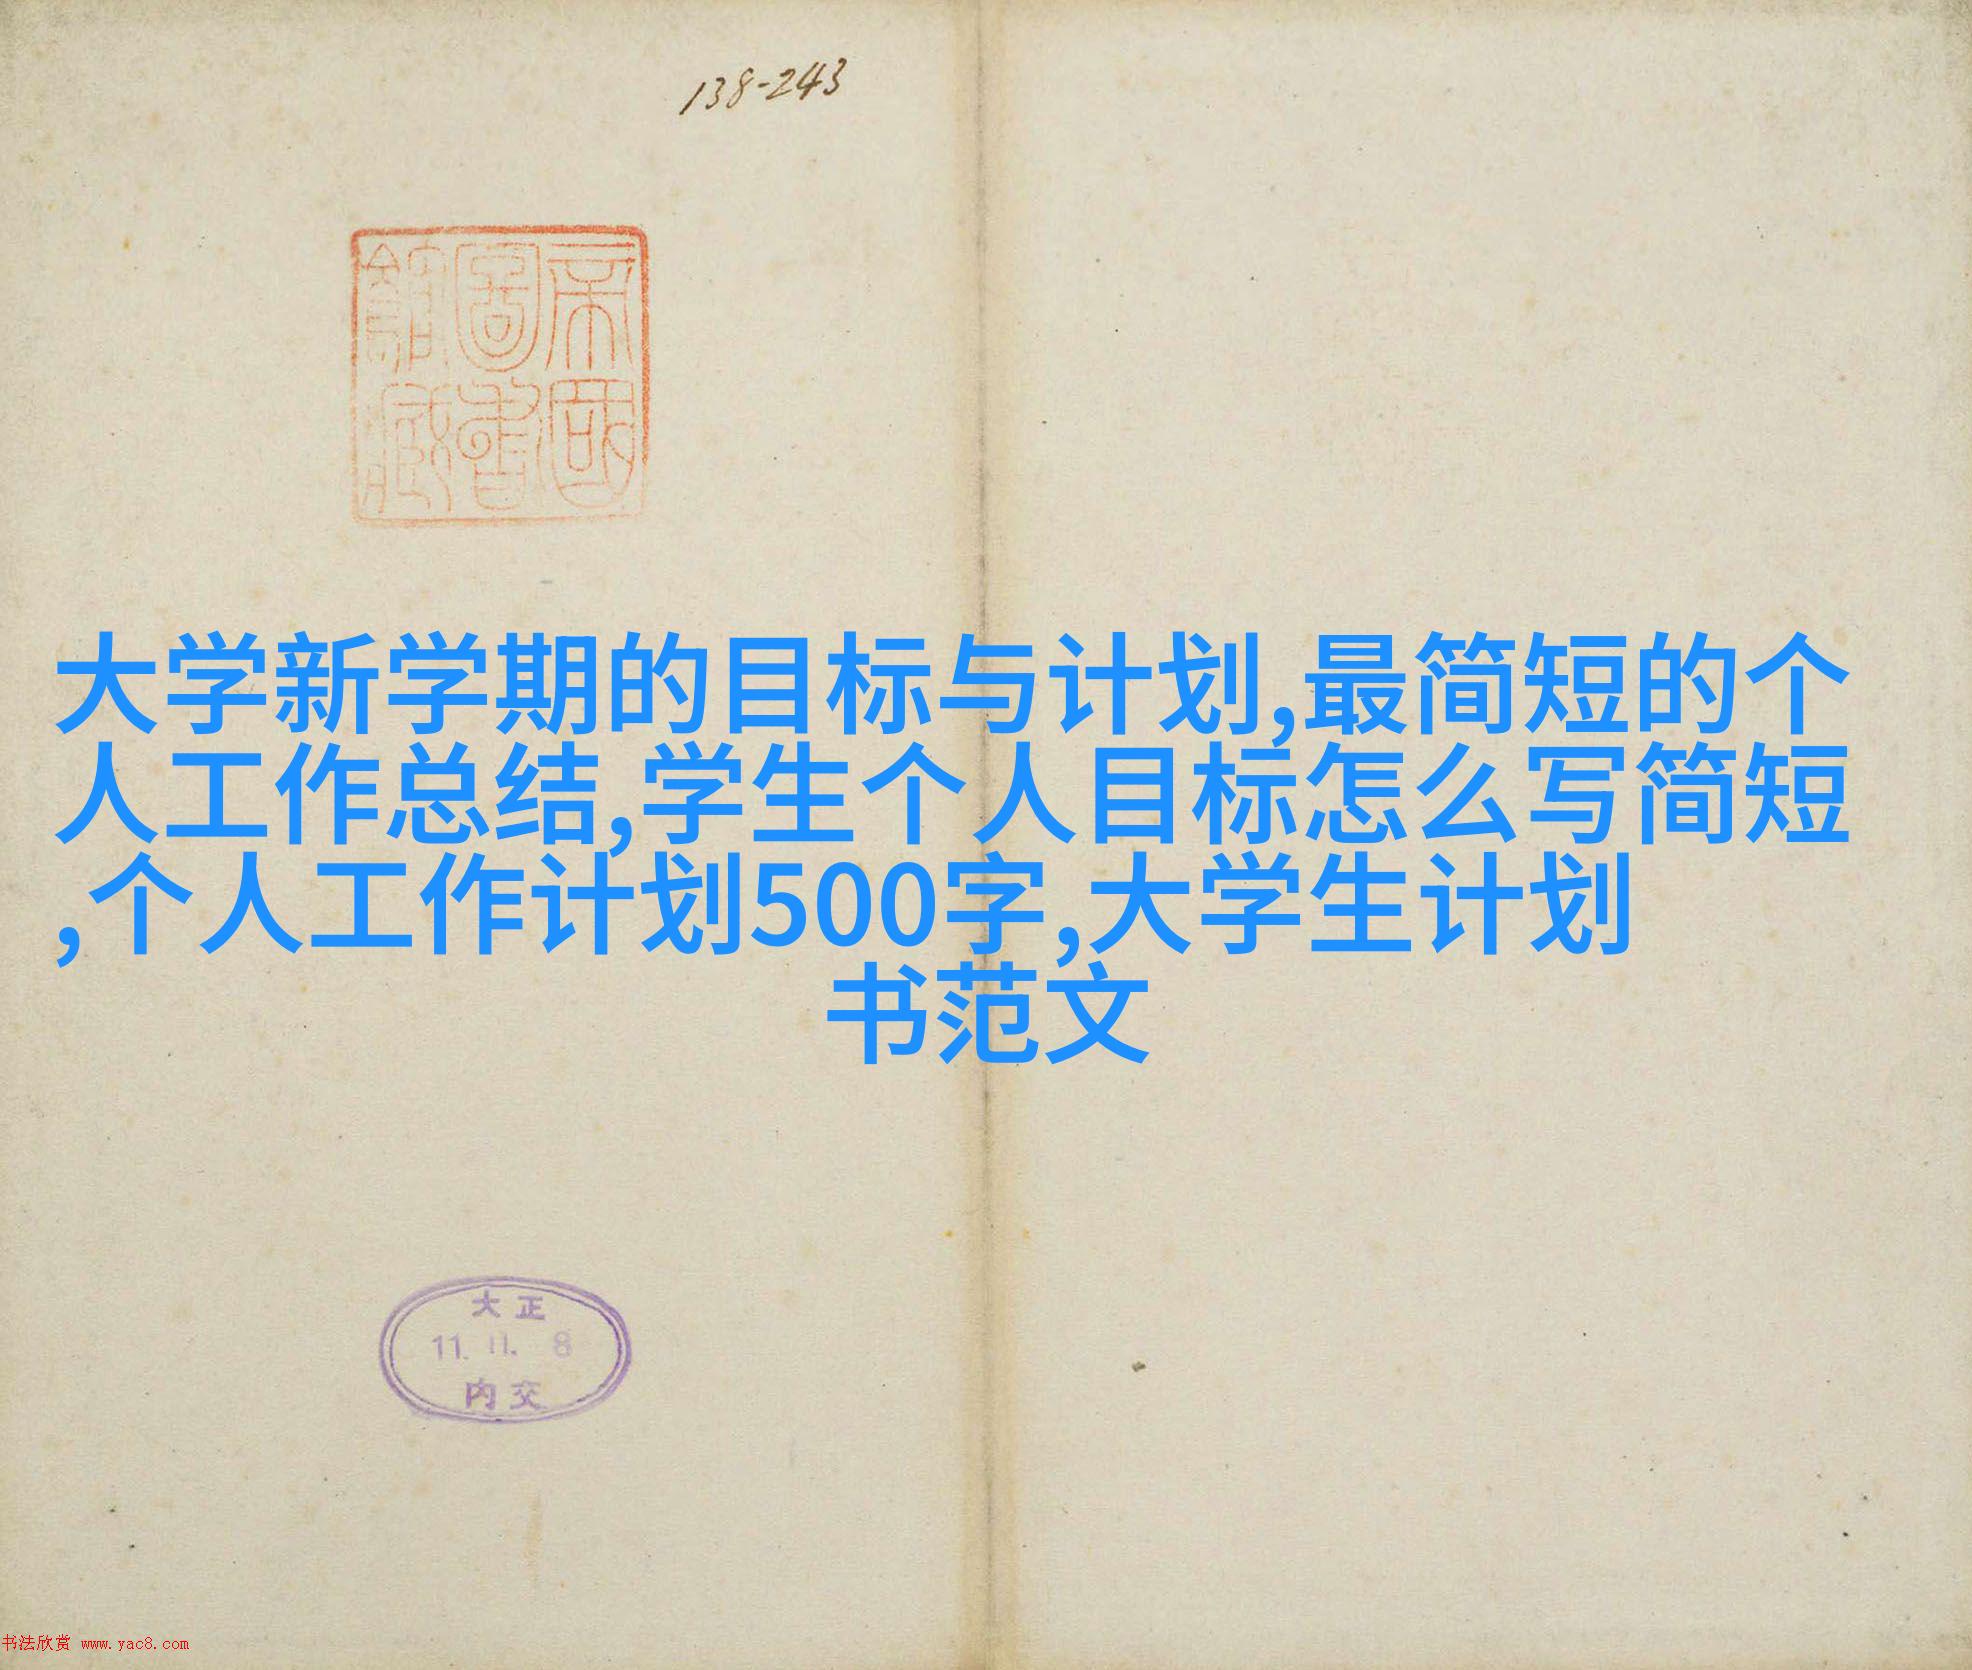 138-243
帝國
圖書
館藏
大学新学期的目标与计划,最简短的个
人工作总结,学生个人目标怎么写简短
,个人工作计划500字,大学生计划
书范文
大正
11. 11. 8
内交
书法欣赏 www.yac8.com